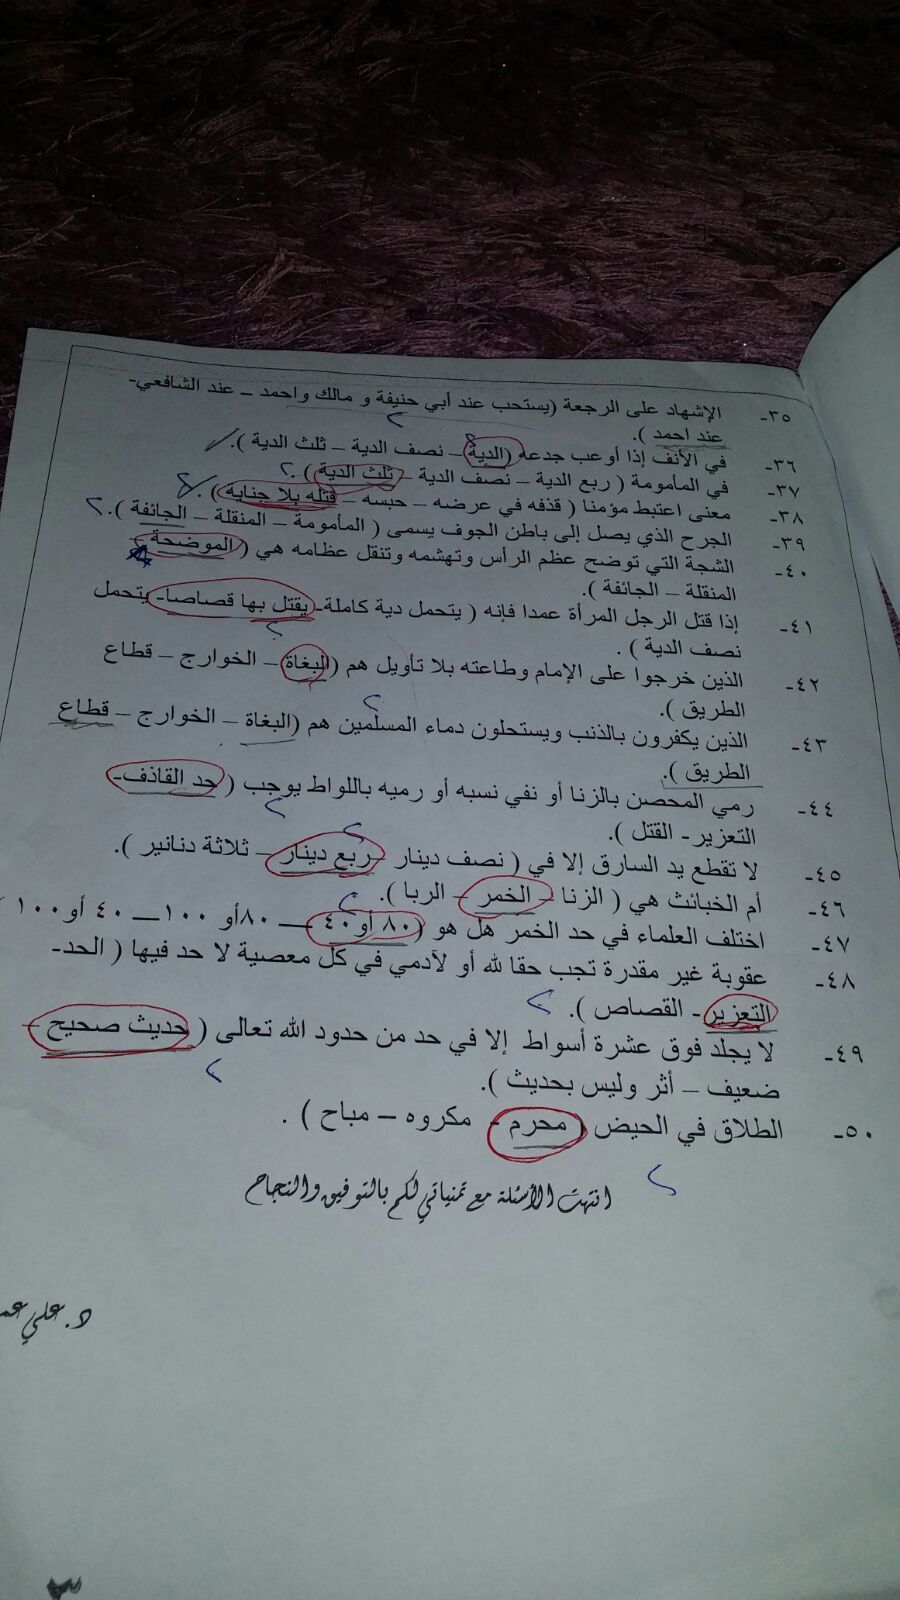 ٣٥- الإشهاد على الرجعة (يستحب عند أبي حنيفة و مالك واحمد – عند الشافعي-
عند احمد ).
٣٦- في الأنف إذا أوعب جدعه (الدية – نصف الدية – ثلث الدية ).
٣٧- في المأمومة ( ربع الدية – نصف الدية – ثلث الدية ).
٣٨- معنى اعتبط مؤمنا ( قذفه في عرضه – حبسه – قتله بلا جنايه ).
٣٩- الجرح الذي يصل إلى باطن الجوف يسمى ( المأمومة – المنقلة – الجائفة ).
٤٠- الشجة التي توضح عظم الرأس وتهشمه وتنقل عظامه هي ( الموضحة –
المنقلة – الجائفة ).
٤١- إذا قتل الرجل المرأة عمدا فإنه ( يتحمل دية كاملة- يقتل بها قصاصا- يتحمل
نصف الدية ) .
٤٢- الذين خرجوا على الإمام وطاعته بلا تأويل هم (البغاة – الخوارج – قطاع
الطريق ).
٤٣- الذين يكفرون بالذنب ويستحلون دماء المسلمين هم (البغاة – الخوارج – قطاع
الطريق ).
٤٤- رمي المحصن بالزنا أو نفي نسبه أو رميه باللواط يوجب ( حد القاذف-
التعزير - القتل ).
٤٥- لا تقطع يد السارق إلا في ( نصف دينار – ربع دينار – ثلاثة دنانير ).
٤٦- أم الخبائث هي ( الزنا – الخمر – الربا ).
٤٧- اختلف العلماء في حد الخمر هل هو ( ٨٠ أو ٤٠ – ٨٠أو ١٠٠ – ٤٠ أو ١٠٠ )
٤٨- عقوبة غير مقدرة تجب حقا لله أو لآدمي في كل معصية لا حد فيها ( الحد-
التعزير - القصاص ).
٤٩- لا يجلد فوق عشرة أسواط إلا في حد من حدود الله تعالى ( حديث صحيح –
ضعيف – أثر وليس بحديث ).
٥٠- الطلاق في الحيض ( محرم - مكروه – مباح ) .
انتهت الأسئلة مع تمنياتي لكم بالتوفيق والنجاح
د. علي
٣